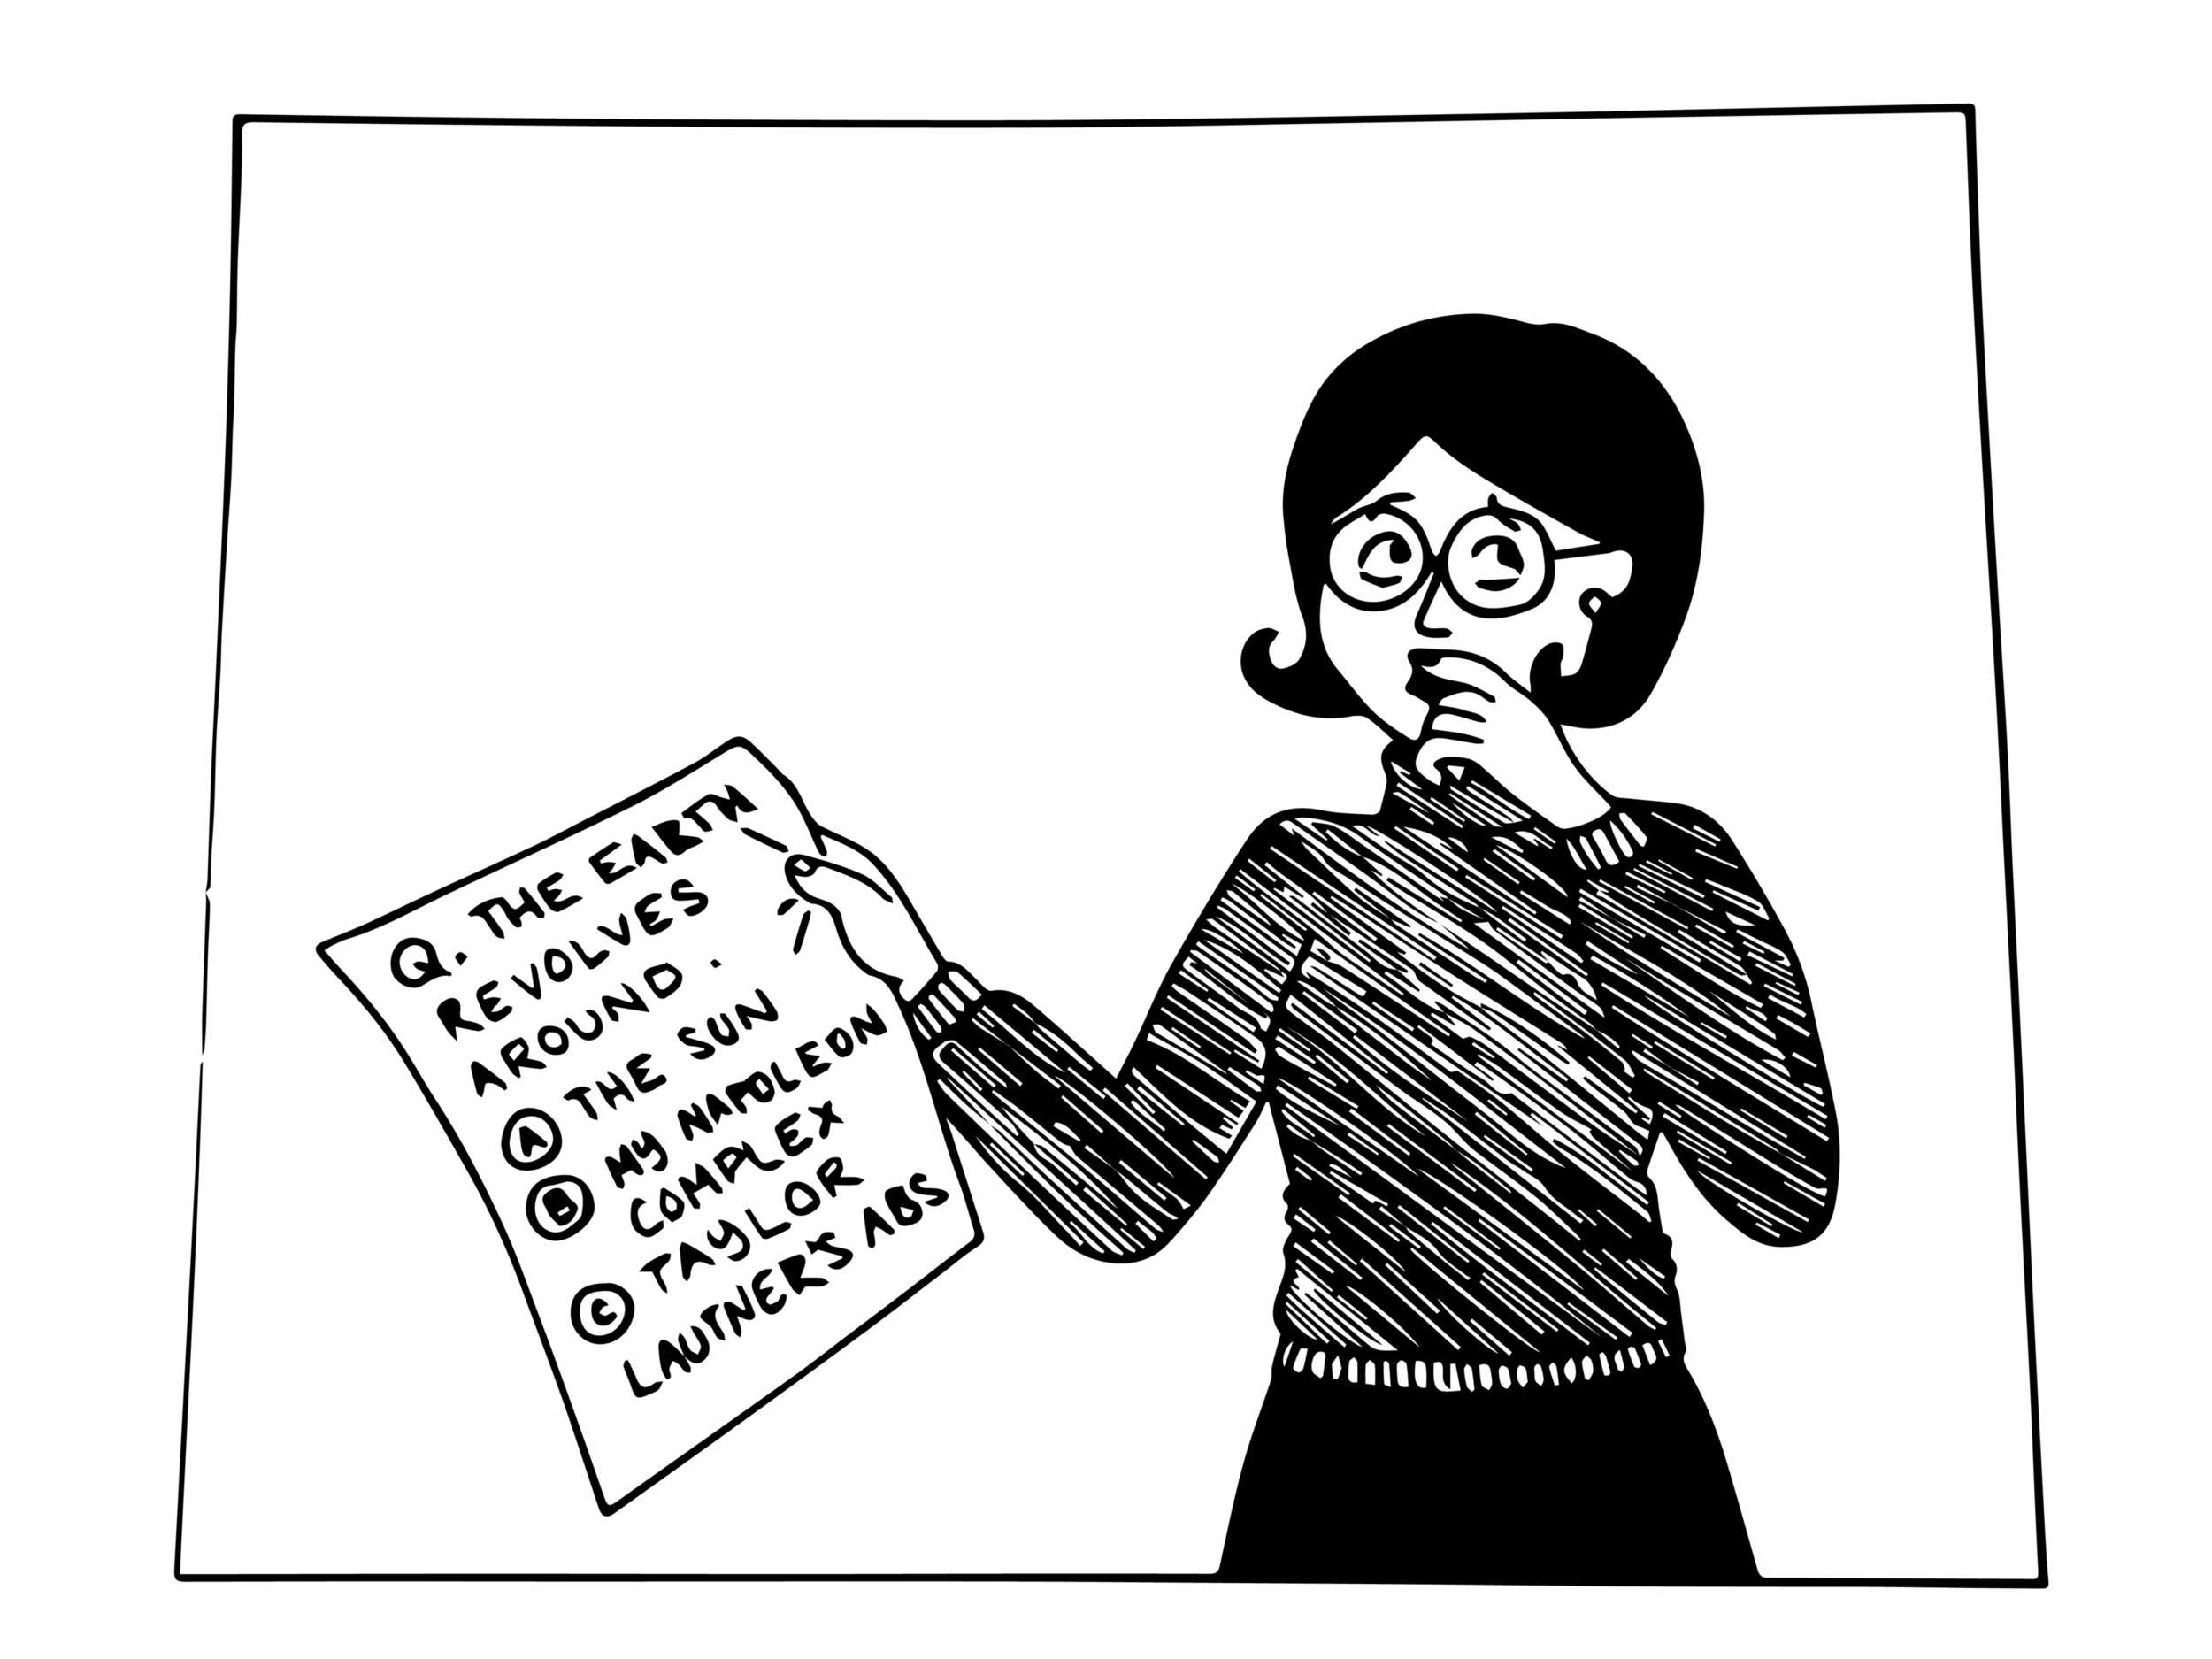 Q. THE EARTH
REVOLVES
AROUND .
A THE SUN
B MY NAPOLEON
COMPLEX
C TAYLOR
LAUTNER'S ABS